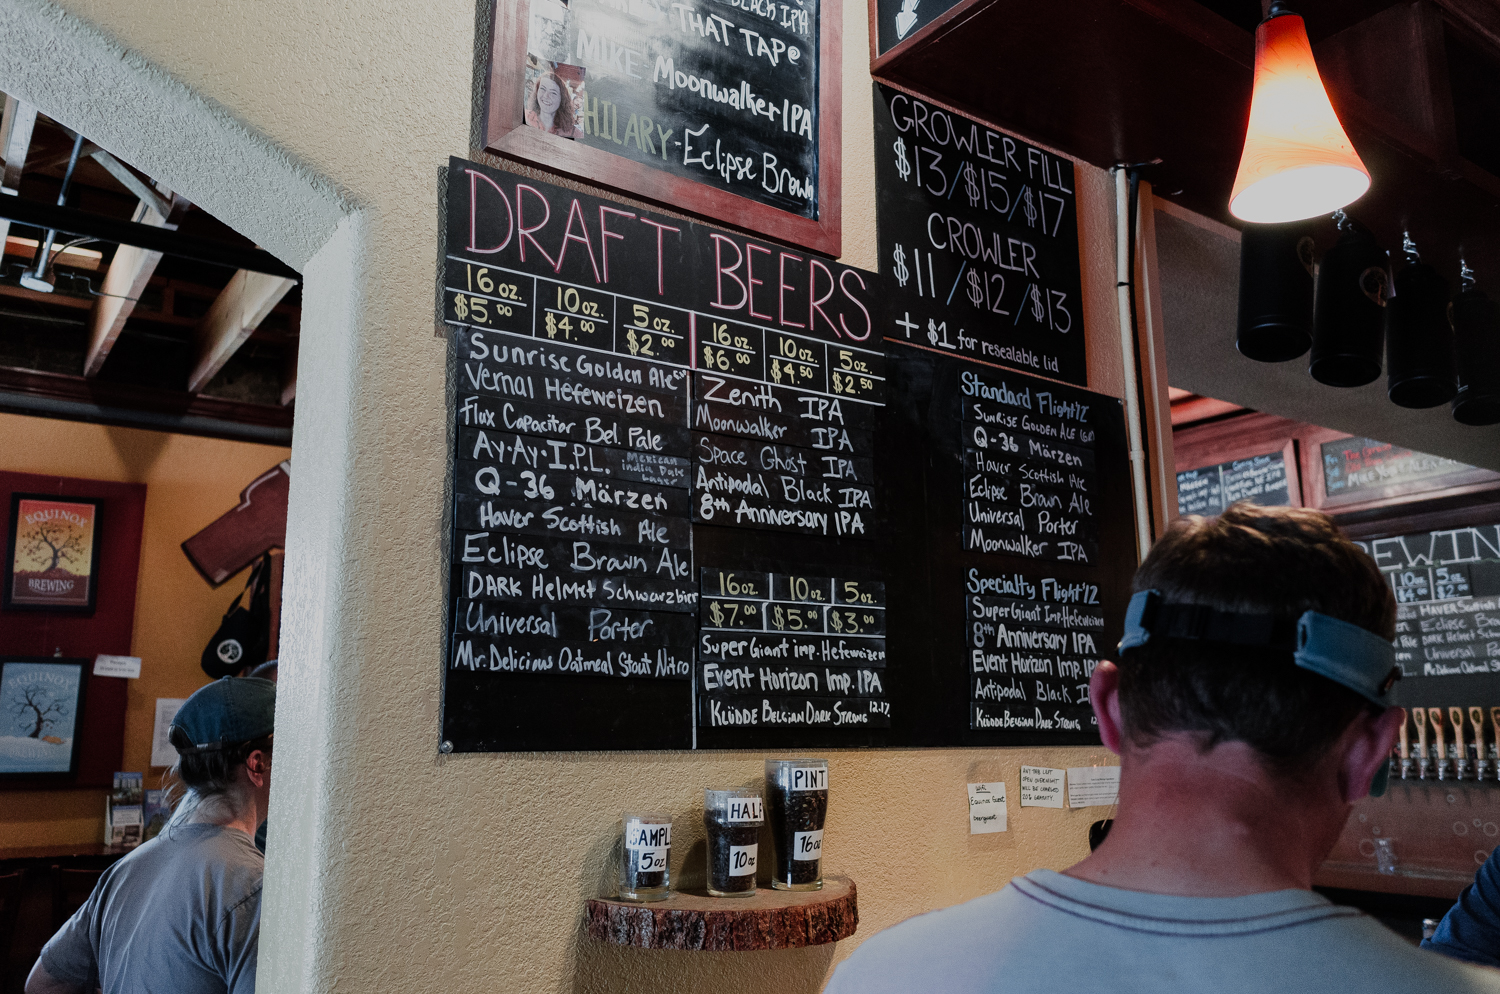 BLACK IPA
THAT TAP@
MIKE Moonwalker IPA
HILARY-Eclipse Brown
DRAFT BEERS
16 oz. 10 oz. 5 oz.
$5.00 $4.00 $2.00
Sunrise Golden Ale
Vernal Hefeweizen
Flux Capacitor Bel. Pale
Ay·Ay·I.P.L. Mexican India Pale Lager
Q-36 Märzen
Haver Scottish Ale
Eclipse Brown Ale
DARK Helmet Schwarzbier
Universal Porter
Mr. Delicious Oatmeal Stout Nitro
16 oz. 10 oz. 5 oz.
$6.00 $4.50 $2.50
Zenith IPA
Moonwalker IPA
Space Ghost IPA
Antipodal Black IPA
8th Anniversary IPA
16 oz. 10 oz. 5 oz.
$7.00 $5.00 $3.00
Super Giant imp. Hefeweizen
Event Horizon Imp. IPA
KLÜDDE BELGIAN DARK STRONG 12.17
GROWLER FILL
$13/$15/$17
CROWLER
$11/$12/$13
+ $1 for resealable lid
Standard Flight $12
SUNRISE GOLDEN ALE
Q-36 Märzen
Haver Scottish Ale
Eclipse Brown Ale
Universal Porter
Moonwalker IPA
Specialty Flight $12
Super Giant Imp. Hefeweizen
8th Anniversary IPA
Event Horizon Imp. IPA
Antipodal Black I
KLÜDDE BELGIAN DARK STRONG 12
SAMPLE
5oz
HALF
10oz
PINT
16oz
Equinox Guest
ANY TAB LEFT
OPEN OVERNIGHT
WILL BE CHARGED
20% GRATUITY.
EQUINOX
BREWING
EQUINOX
EWIN
10oz 5oz
HAVER Scottish
Eclipse Brown
DARK Helmet Schw
Universal Po
Mr. Delicious Oatmeal S